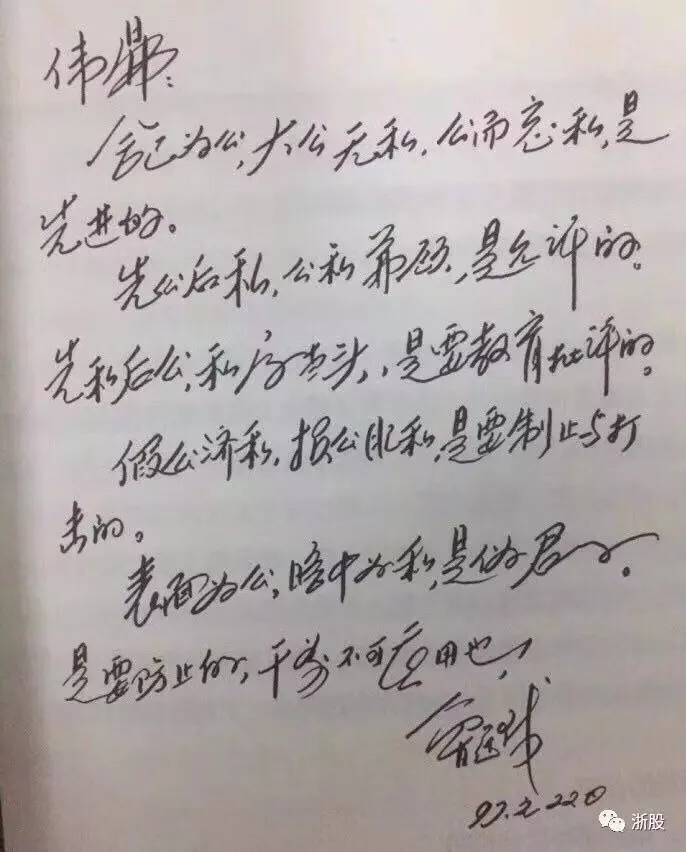 伟鼎:
舍己为公,大公无私,公而忘私,是
先进的。
先公后私,公私兼顾,是允许的。
先私后公,私字当头,是要教育批评的。
假公济私,损公肥私,是要制止与打
击的。
表面为公,暗中为私,是伪君子。
是要防止的,千万不可应用也!
鲁冠球
97.2.22日
浙股